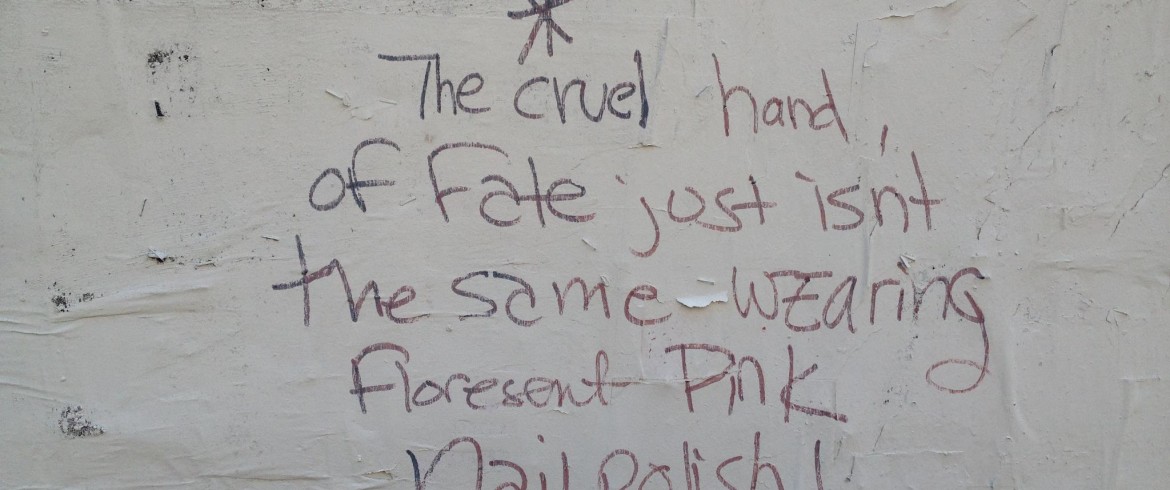 *
The cruel hand,
of Fate just isn't
the same wearing
floresent Pink
Nail polish!